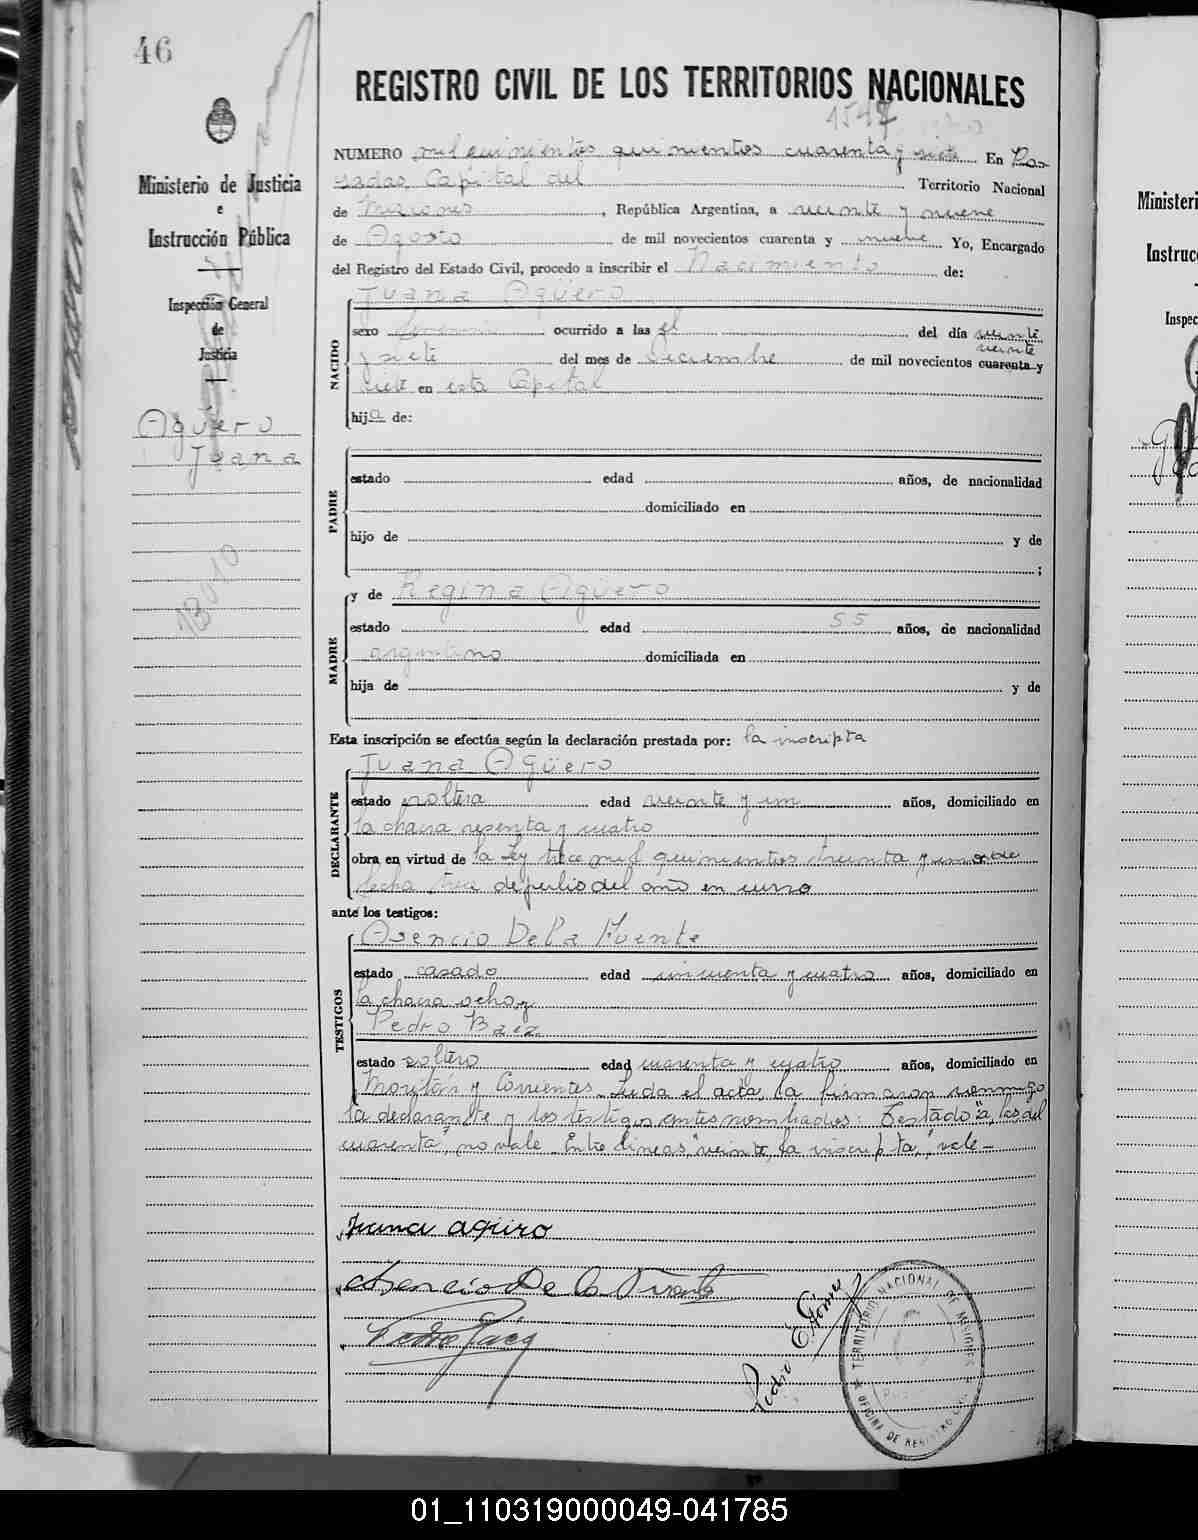 46
REGISTRO CIVIL DE LOS TERRITORIOS NACIONALES
1547
Ministerio de Justicia
e
Instrucción Pública
Inspección General
de
Justicia
Agüero
Juana
13010
NUMERO mil quinientos quinientos cuarenta y siete En Po-
sadas, Capital del Territorio Nacional
de Misiones, República Argentina, a veinte y nueve
de Agosto de mil novecientos cuarenta y nueve Yo, Encargado
del Registro del Estado Civil, procedo a inscribir el Nacimiento de:
NACIDO
Juana Agüero
sexo femenino ocurrido a las el del día veinte
veinte
y siete del mes de Diciembre de mil novecientos cuarenta y
siete en esta Capital
hija de:
PADRE
estado edad años, de nacionalidad
domiciliado en
hijo de y de
;
MADRE
y de Regina Agüero
estado edad 55 años, de nacionalidad
argentino domiciliada en
hija de y de
Esta inscripción se efectúa según la declaración prestada por: la inscripta
DECLARANTE
Juana Agüero
estado soltera edad veinte y un años, domiciliado en
la chacra sesenta y cuatro
obra en virtud de la Ley trece mil quinientos treinta y uno de
fecha trece de julio del año en curso
ante los testigos:
TESTIGOS
Asencio De la Fuente
estado casado edad cincuenta y cuatro años, domiciliado en
la chacra ocho y
Pedro Baez
estado soltero edad cuarenta y cuatro años, domiciliado en
Moritán y Corrientes. Leida el acta, la firmaron conmigo
la declarante y los testigos antes nombrados: Testado "a, las del
cuarenta", no vale. Entre lineas, "veinte, la inscripta", vale—
Juana agüero
Asencio De la Fuente
Pedro Báez
Pedro E. Gómez
TERRITORIO NACIONAL DE MISIONES
OFICINA DE REGISTRO CIVIL
Ministeri
Instruc
Inspec
01_110319000049-041785